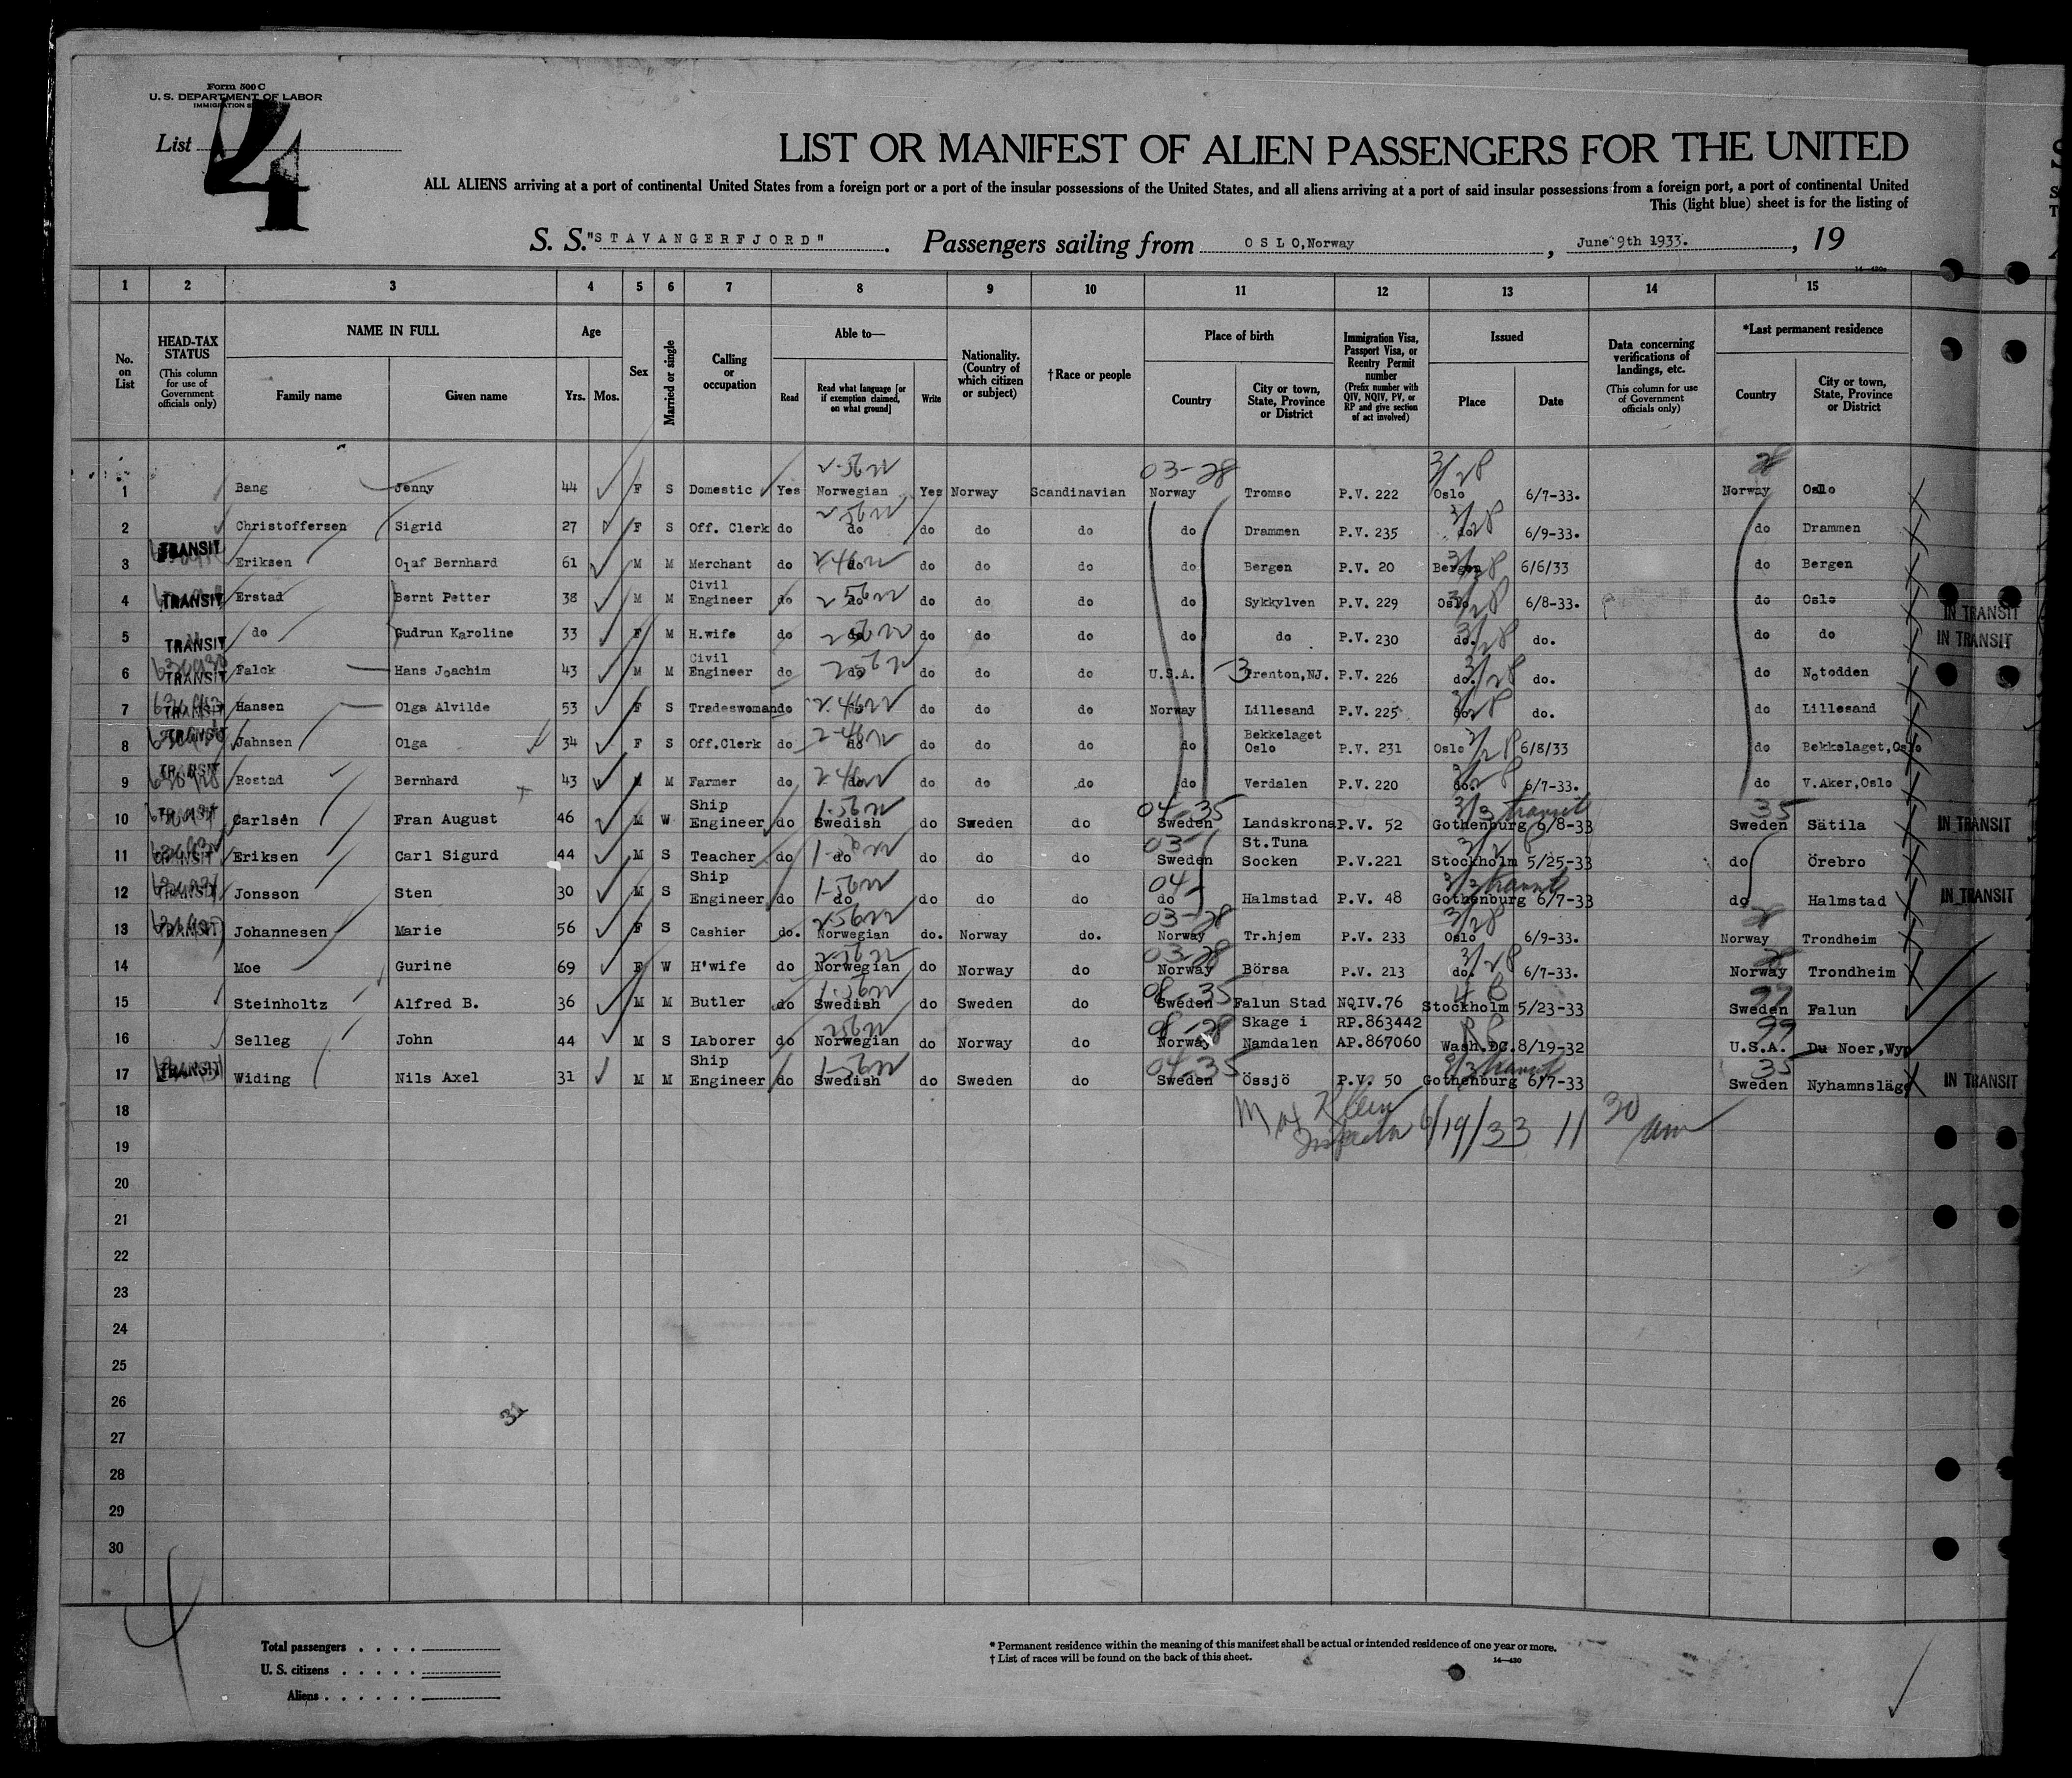 Form 500 C
U. S. DEPARTMENT OF LABOR
List 4
LIST OR MANIFEST OF ALIEN PASSENGERS FOR THE UNITED
ALL ALIENS arriving at a port of continental United States from a foreign port or a port of the insular possessions of the United States, and all aliens arriving at a port of said insular possessions from a foreign port, a port of continental United
This (light blue) sheet is for the listing of
S. S. "STAVANGERFJORD". Passengers sailing from OSLO, Norway, June 9th 1933., 19
1 2 3 4 5 6 7 8 9 10 11 12 13 14 15
No. on List
HEAD-TAX STATUS (This column for use of Government officials only)
NAME IN FULL Family name Given name
Age Yrs. Mos.
Sex
Married or single
Calling or occupation
Able to— Read Read what language [or if exemption claimed, on what ground] Write
Nationality. (Country of which citizen or subject)
†Race or people
Place of birth Country City or town, State, Province or District
Immigration Visa, Passport Visa, or Reentry Permit number (Prefix number with QIV, NQIV, PV, or RP and give section of act involved)
Issued Place Date
Data concerning verifications of landings, etc. (This column for use of Government officials only)
*Last permanent residence Country City or town, State, Province or District
1 Bang Jenny 44 F S Domestic Yes Norwegian Yes Norway Scandinavian Norway Tromso P.V. 222 Oslo 6/7-33. Norway Oslo
2 Christoffersen Sigrid 27 F S Off. Clerk do do do do do do Drammen P.V. 235 do. 6/9-33. do Drammen
3 TRANSIT Eriksen Olaf Bernhard 61 M M Merchant do do do do do do Bergen P.V. 20 Bergen 6/6/33 do Bergen
4 TRANSIT Erstad Bernt Petter 38 M M Civil Engineer do do do do do do Sykkylven P.V. 229 Oslo 6/8-33. do Oslo IN TRANSIT
5 TRANSIT do Gudrun Karoline 33 F M H.wife do do do do do do do P.V. 230 do. do. do do IN TRANSIT
6 TRANSIT Falck Hans Joachim 43 M M Civil Engineer do do do do do U.S.A. Trenton,NJ. P.V. 226 do. do. do Notodden
7 TRANSIT Hansen Olga Alvilde 53 F S Tradeswoman do do do do do Norway Lillesand P.V. 225 do. do. do Lillesand
8 TRANSIT Jahnsen Olga 34 F S Off.Clerk do do do do do do Bekkelaget Oslo P.V. 231 Oslo 6/8/33 do Bekkelaget,Oslo
9 TRANSIT Rostad Bernhard 43 M M Farmer do do do do do do Verdalen P.V. 220 do. 6/7-33. do V.Aker,Oslo
10 Carlsen Fran August 46 M W Ship Engineer do Swedish do Sweden do Sweden Landskrona P.V. 52 Gothenburg 6/8-33 Sweden Sätila IN TRANSIT
11 TRANSIT Eriksen Carl Sigurd 44 M S Teacher do do do do do Sweden St.Tuna Socken P.V.221 Stockholm 5/25-33 do Örebro
12 TRANSIT Jonsson Sten 30 M S Ship Engineer do do do do do do Halmstad P.V. 48 Gothenburg 6/7-33 do Halmstad IN TRANSIT
13 TRANSIT Johannesen Marie 56 F S Cashier do. Norwegian do. Norway do. Norway Tr.hjem P.V. 233 Oslo 6/9-33. Norway Trondheim
14 Moe Gurine 69 F W H'wife do Norwegian do Norway do Norway Börsa P.V. 213 do. 6/7-33. Norway Trondheim
15 Steinholtz Alfred B. 36 M M Butler do Swedish do Sweden do Sweden Falun Stad NQIV.76 Stockholm 5/23-33 Sweden Falun
16 Selleg John 44 M S Laborer do Norwegian do Norway do Norway Skage i Namdalen RP.863442 AP.867060 Wash.DC. 8/19-32 U.S.A. Du Noer,Wyo
17 TRANSIT Widing Nils Axel 31 M M Ship Engineer do Swedish do Sweden do Sweden Össjö P.V. 50 Gothenburg 6/7-33 Sweden Nyhamnsläge IN TRANSIT
18
Max Klein
Inspector 6/19/33 11 30 am
19
20
21
22
23
24
25
26
27
28
29
30
Total passengers
U. S. citizens
Aliens
* Permanent residence within the meaning of this manifest shall be actual or intended residence of one year or more.
† List of races will be found on the back of this sheet.
14—430